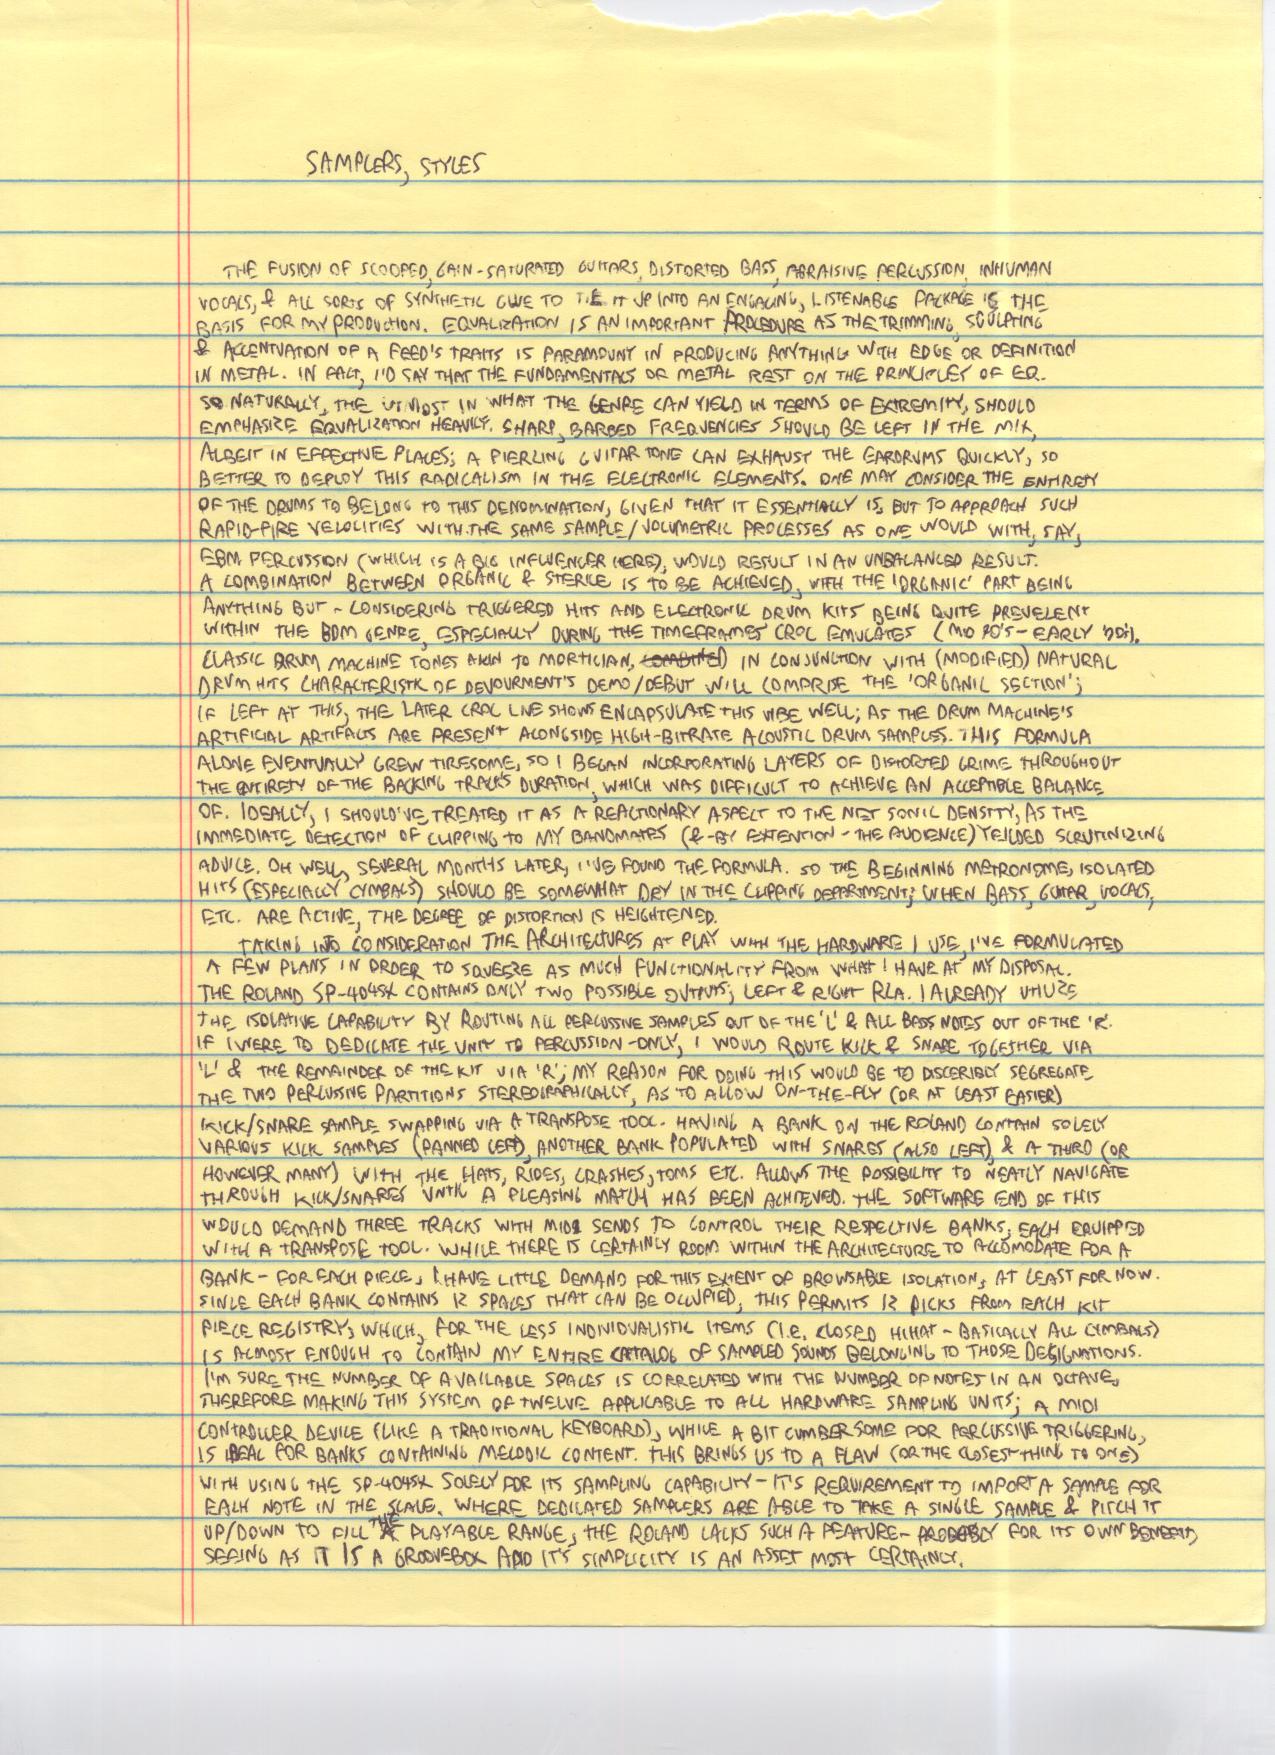 SAMPLERS, STYLES
THE FUSION OF SCOOPED, GAIN-SATURATED GUITARS, DISTORTED BASS, ABRAISIVE PERCUSSION, INHUMAN
VOCALS, & ALL SORTS OF SYNTHETIC GLUE TO TIE IT UP INTO AN ENGAGING, LISTENABLE PACKAGE IS THE
BASIS FOR MY PRODUCTION. EQUALIZATION IS AN IMPORTANT PROCEDURE AS THE TRIMMING, SCULPTING
& ACCENTUATION OF A FEED'S TRAITS IS PARAMOUNT IN PRODUCING ANYTHING WITH EDGE OR DEFINITION
IN METAL. IN FACT, I'D SAY THAT THE FUNDAMENTALS OF METAL REST ON THE PRINCIPLES OF EQ.
SO NATURALLY, THE UTMOST IN WHAT THE GENRE CAN YIELD IN TERMS OF EXTREMITY, SHOULD
EMPHASIZE EQUALIZATION HEAVILY. SHARP, BARBED FREQUENCIES SHOULD BE LEFT IN THE MIX,
ALBEIT IN EFFECTIVE PLACES; A PIERCING GUITAR TONE CAN EXHAUST THE EARDRUMS QUICKLY, SO
BETTER TO DEPLOY THIS RADICALISM IN THE ELECTRONIC ELEMENTS. ONE MAY CONSIDER THE ENTIRETY
OF THE DRUMS TO BELONG TO THIS DENOMINATION, GIVEN THAT IT ESSENTIALLY IS, BUT TO APPROACH SUCH
RAPID-FIRE VELOCITIES WITH THE SAME SAMPLE/VOLUMETRIC PROCESSES AS ONE WOULD WITH, SAY,
EBM PERCUSSION (WHICH IS A BIG INFLUENCER HERE), WOULD RESULT IN AN UNBALANCED RESULT.
A COMBINATION BETWEEN ORGANIC & STERILE IS TO BE ACHIEVED, WITH THE 'ORGANIC' PART BEING
ANYTHING BUT - CONSIDERING TRIGGERED HITS AND ELECTRONIC DRUM KITS BEING QUITE PREVELENT
WITHIN THE BDM GENRE, ESPECIALLY DURING THE TIMEFRAMES CROC EMULATES (MID 90'S - EARLY '00S).
CLASSIC DRUM MACHINE TONES AKIN TO MORTICIAN, COMBINED IN CONJUNCTION WITH (MODIFIED) NATURAL
DRUM HITS CHARACTERISTIC OF DEVOURMENT'S DEMO/DEBUT WILL COMPRISE THE 'ORGANIC SECTION';
IF LEFT AT THIS, THE LATER CROC LIVE SHOWS ENCAPSULATE THIS VIBE WELL; AS THE DRUM MACHINE'S
ARTIFICIAL ARTIFACTS ARE PRESENT ALONGSIDE HIGH-BITRATE ACOUSTIC DRUM SAMPLES. THIS FORMULA
ALONE EVENTUALLY GREW TIRESOME, SO I BEGAN INCORPORATING LAYERS OF DISTORTED GRIME THROUGHOUT
THE ENTIRETY OF THE BACKING TRACK'S DURATION, WHICH WAS DIFFICULT TO ACHIEVE AN ACCEPTIBLE BALANCE
OF. IDEALLY, I SHOULD'VE TREATED IT AS A REACTIONARY ASPECT TO THE NET SONIC DENSITY, AS THE
IMMEDIATE DETECTION OF CLIPPING TO MY BANDMATES (&-BY EXTENTION-THE AUDIENCE) YEILDED SCRUTINIZING
ADVICE. OH WELL, SEVERAL MONTHS LATER, I'VE FOUND THE FORMULA. SO THE BEGINNING METRONOME, ISOLATED
HITS (ESPECIALLY CYMBALS) SHOULD BE SOMEWHAT DRY IN THE CLIPPING DEPARTMENT; WHEN BASS, GUITAR, VOCALS,
ETC. ARE ACTIVE, THE DEGREE OF DISTORTION IS HEIGHTENED.
TAKING INTO CONSIDERATION THE ARCHITECTURES AT PLAY WITH THE HARDWARE I USE, I'VE FORMULATED
A FEW PLANS IN ORDER TO SQUEEZE AS MUCH FUNCTIONALITY FROM WHAT I HAVE AT MY DISPOSAL.
THE ROLAND SP-404SX CONTAINS ONLY TWO POSSIBLE OUTPUTS; LEFT & RIGHT RCA. I ALREADY UTILIZE
THE ISOLATIVE CAPABILITY BY ROUTING ALL PERCUSSIVE SAMPLES OUT OF THE 'L' & ALL BASS NOTES OUT OF THE 'R'.
IF I WERE TO DEDICATE THE UNIT TO PERCUSSION-ONLY, I WOULD ROUTE KICK & SNARE TOGETHER VIA
'L' & THE REMAINDER OF THE KIT VIA 'R'; MY REASON FOR DOING THIS WOULD BE TO DISCERIBLY SEGREGATE
THE TWO PERCUSSIVE PARTITIONS STEREOGRAPHICALLY, AS TO ALLOW ON-THE-FLY (OR AT LEAST EASIER)
KICK/SNARE SAMPLE SWAPPING VIA A TRANSPOSE TOOL. HAVING A BANK ON THE ROLAND CONTAIN SOLELY
VARIOUS KICK SAMPLES (PANNED LEFT), ANOTHER BANK POPULATED WITH SNARES (ALSO LEFT), & A THIRD (OR
HOWEVER MANY) WITH THE HATS, RIDES, CRASHES, TOMS ETC. ALLOWS THE POSSIBILITY TO NEATLY NAVIGATE
THROUGH KICK/SNARES UNTIL A PLEASING MATCH HAS BEEN ACHIEVED. THE SOFTWARE END OF THIS
WOULD DEMAND THREE TRACKS WITH MIDI SENDS TO CONTROL THEIR RESPECTIVE BANKS, EACH EQUIPPED
WITH A TRANSPOSE TOOL. WHILE THERE IS CERTAINLY ROOM WITHIN THE ARCHITECTURE TO ACCOMODATE FOR A
BANK-FOR EACH PIECE, I HAVE LITTLE DEMAND FOR THIS EXTENT OF BROWSABLE ISOLATION, AT LEAST FOR NOW.
SINCE EACH BANK CONTAINS 12 SPACES THAT CAN BE OCCUPIED, THIS PERMITS 12 PICKS FROM EACH KIT
PIECE REGISTRY, WHICH, FOR THE LESS INDIVIDUALISTIC ITEMS (I.E. CLOSED HIHAT - BASICALLY ALL CYMBALS)
IS ALMOST ENOUGH TO CONTAIN MY ENTIRE CATALOG OF SAMPLED SOUNDS BELONGING TO THOSE DESIGNATIONS.
I'M SURE THE NUMBER OF AVAILABLE SPACES IS CORRELATED WITH THE NUMBER OF NOTES IN AN OCTAVE,
THEREFORE MAKING THIS SYSTEM OF TWELVE APPLICABLE TO ALL HARDWARE SAMPLING UNITS; A MIDI
CONTROLLER DEVICE (LIKE A TRADITIONAL KEYBOARD), WHILE A BIT CUMBERSOME FOR PERCUSSIVE TRIGGERING,
IS IDEAL FOR BANKS CONTAINING MELODIC CONTENT. THIS BRINGS US TO A FLAW (OR THE CLOSEST THING TO ONE)
WITH USING THE SP-404SX SOLELY FOR ITS SAMPLING CAPABILITY - IT'S REQUIREMENT TO IMPORT A SAMPLE FOR
EACH NOTE IN THE SCALE. WHERE DEDICATED SAMPLERS ARE ABLE TO TAKE A SINGLE SAMPLE & PITCH IT
UP/DOWN TO FILL THE PLAYABLE RANGE, THE ROLAND LACKS SUCH A FEATURE - PROBABLY FOR ITS OWN BENEFIT,
SEEING AS IT IS A GROOVEBOX AND IT'S SIMPLICITY IS AN ASSET MOST CERTAINLY.